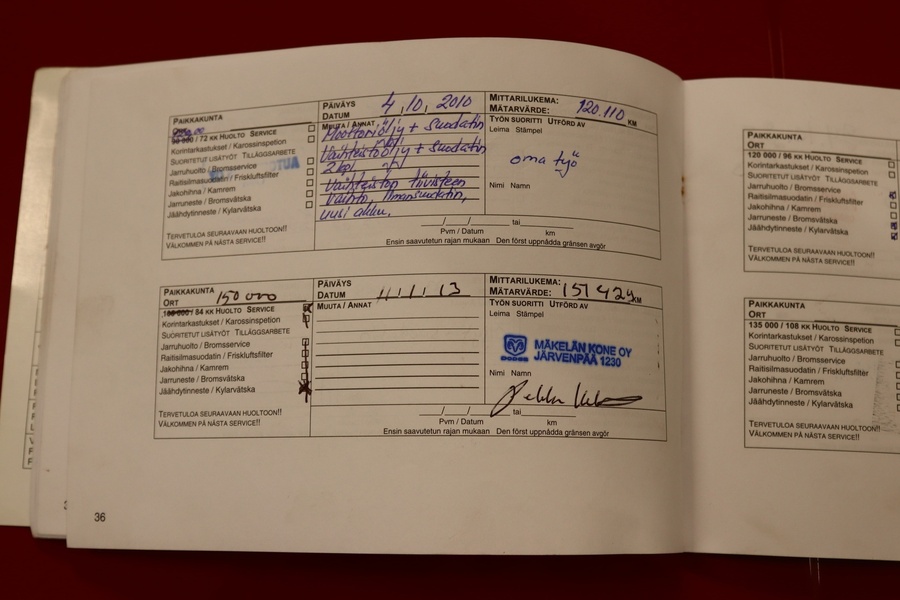 PAIKKAKUNTA
ORT
/ 72 KK HUOLTO SERVICE
Korintarkastukset / Karossinspetion
SUORITETUT LISÄTYÖT TILLÄGGSARBETE
Jarruhuolto / Bromsservice
Raitisilmasuodatin / Friskluftsfilter
Jakohihna / Kamrem
Jarruneste / Bromsvätska
Jäähdytinneste / Kylarvätska
TERVETULOA SEURAAVAAN HUOLTOON!!
VÄLKOMMEN PÅ NÄSTA SERVICE!!
PÄIVÄYS
DATUM 4.10.2010
MUUTA / ANNAT
Moottoriöljy + suodatin
Vaihteistoöljy + suodatin
2 kpl
Vaihteiston tiivisteen
vaihto, ilmansuodatin,
uusi akku.
/ / tai
Pvm / Datum km
Ensin saavutetun rajan mukaan Den först uppnådda gränsen avgör
MITTARILUKEMA:
MÄTARVÄRDE: 120.110 KM
TYÖN SUORITTI UTFÖRD AV
Leima Stämpel
oma työ
Nimi Namn
PAIKKAKUNTA
ORT 150 000
/ 84 KK HUOLTO SERVICE
Korintarkastukset / Karossinspetion
SUORITETUT LISÄTYÖT TILLÄGGSARBETE
Jarruhuolto / Bromsservice
Raitisilmasuodatin / Friskluftsfilter
Jakohihna / Kamrem
Jarruneste / Bromsvätska
Jäähdytinneste / Kylarvätska
TERVETULOA SEURAAVAAN HUOLTOON!!
VÄLKOMMEN PÅ NÄSTA SERVICE!!
PÄIVÄYS
DATUM 11/1/13
MUUTA / ANNAT
/ / tai
Pvm / Datum km
Ensin saavutetun rajan mukaan Den först uppnådda gränsen avgör
MITTARILUKEMA:
MÄTARVÄRDE: 151 429 KM
TYÖN SUORITTI UTFÖRD AV
Leima Stämpel
DODGE
MÄKELÄN KONE OY
JÄRVENPÄÄ 1230
Nimi Namn
36
PAIKKAKUNTA
ORT
120 000 / 96 KK HUOLTO SERVICE
Korintarkastukset / Karossinspetion
SUORITETUT LISÄTYÖT TILLÄGGSARBETE
Jarruhuolto / Bromsservice
Raitisilmasuodatin / Friskluftsfilter
Jakohihna / Kamrem
Jarruneste / Bromsvätska
Jäähdytinneste / Kylarvätska
TERVETULOA SEURAAVAAN HUOLTOON!!
VÄLKOMMEN PÅ NÄSTA SERVICE!!
PAIKKAKUNTA
ORT
135 000 / 108 KK HUOLTO SERVICE
Korintarkastukset / Karossinspetion
SUORITETUT LISÄTYÖT TILLÄGGSARBETE
Jarruhuolto / Bromsservice
Raitisilmasuodatin / Friskluftsfilter
Jakohihna / Kamrem
Jarruneste / Bromsvätska
Jäähdytinneste / Kylarvätska
TERVETULOA SEURAAVAAN HUOLTOON!!
VÄLKOMMEN PÅ NÄSTA SERVICE!!